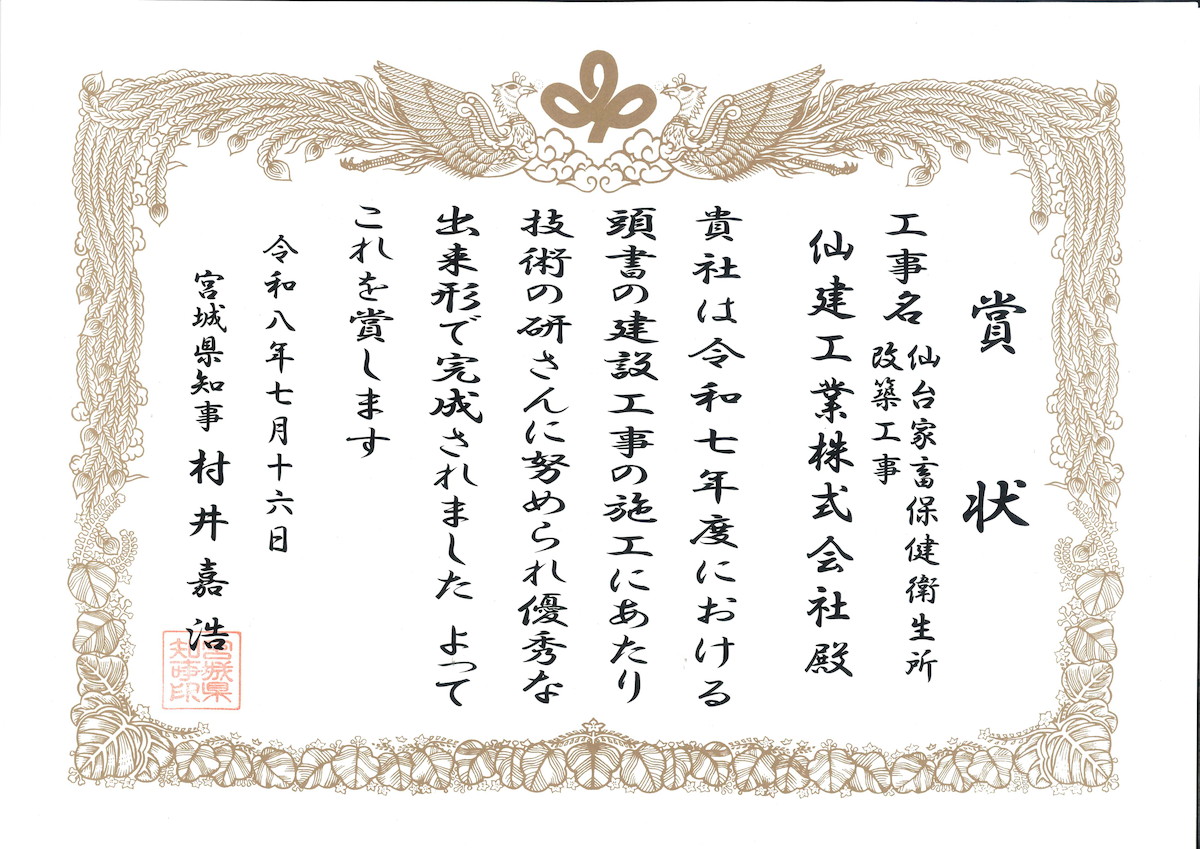 賞状
工事名 仙台家畜保健衛生所
改築工事
仙建工業株式会社殿
貴社は令和七年度における
頭書の建設工事の施工にあたり
技術の研さんに努められ優秀な
出来形で完成されました よって
これを賞します
令和八年七月十六日
宮城県知事 村井嘉浩
宮城県
知事印